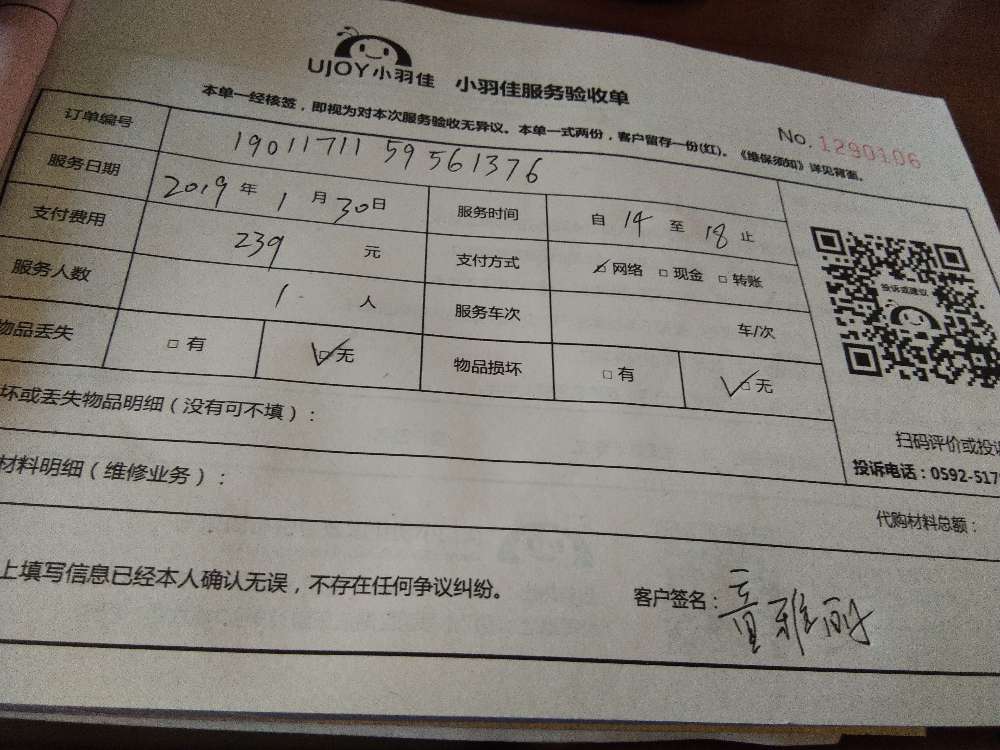 UJOY小羽佳 小羽佳服务验收单
本单一经核签，即视为对本次服务验收无异议。本单一式两份，客户留存一份(红)。《维保须知》详见背面。
No. 1290106
订单编号 1901171159561376
服务日期 2019年1月30日 服务时间 自14至18止
支付费用 239元 支付方式 ☑网络 □现金 □转账
服务人数 1人 服务车次 车/次
物品丢失 □有 ☑无 物品损坏 □有 ☑无
投诉或建议
扫码评价或投诉
投诉电话：0592-517
坏或丢失物品明细（没有可不填）：
材料明细（维修业务）：
代购材料总额：
上填写信息已经本人确认无误，不存在任何争议纠纷。
客户签名：童雅丽